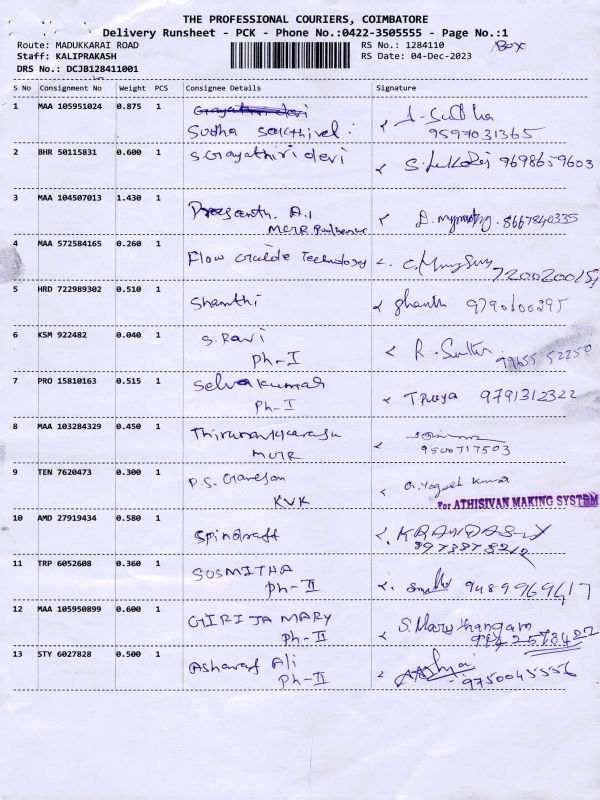 THE PROFESSIONAL COURIERS, COIMBATORE
Delivery Runsheet - PCK - Phone No.:0422-3505555 - Page No.:1
Route: MADUKKARAI ROAD RS No.: 1284110 Box
Staff: KALIPRAKASH RS Date: 04-Dec-2023
DRS No.: DCJB128411001
S No Consignment No Weight PCS Consignee Details Signature
1 MAA 105951024 0.875 1 Gayathri devi
Sudha sakthivel
9597031365
2 BHR 50115831 0.600 1 S. Gayathiri devi 9698659603
3 MAA 104507013 1.430 1 Prasanth. A.1 8667840335
MCUR
4 MAA 572584165 0.260 1 Flow Guide Technology
5 HRD 722989302 0.510 1 Shanthi Shanthi 9790100295
6 KSM 922482 0.040 1 S. Ravi
Ph-I 99655 52250
7 PRO 15810163 0.515 1 Selvakumar 9791312322
Ph-I
8 MAA 103284329 0.450 1 Thirunavukkarasu
MCUR 9500717503
9 TEN 7620473 0.300 1 P.S. Ganesan
KVK
For ATHISIVAN MAKING SYSTEM
10 AMD 27919434 0.580 1 Spindraft
11 TRP 6052608 0.360 1 SUSMITHA
Ph-II 9489969417
12 MAA 105950899 0.600 1 GIRIJA MARY S. Mary thangam
Ph-II
13 STY 6027828 0.500 1 Asharaf Ali
Ph-II 9750045556